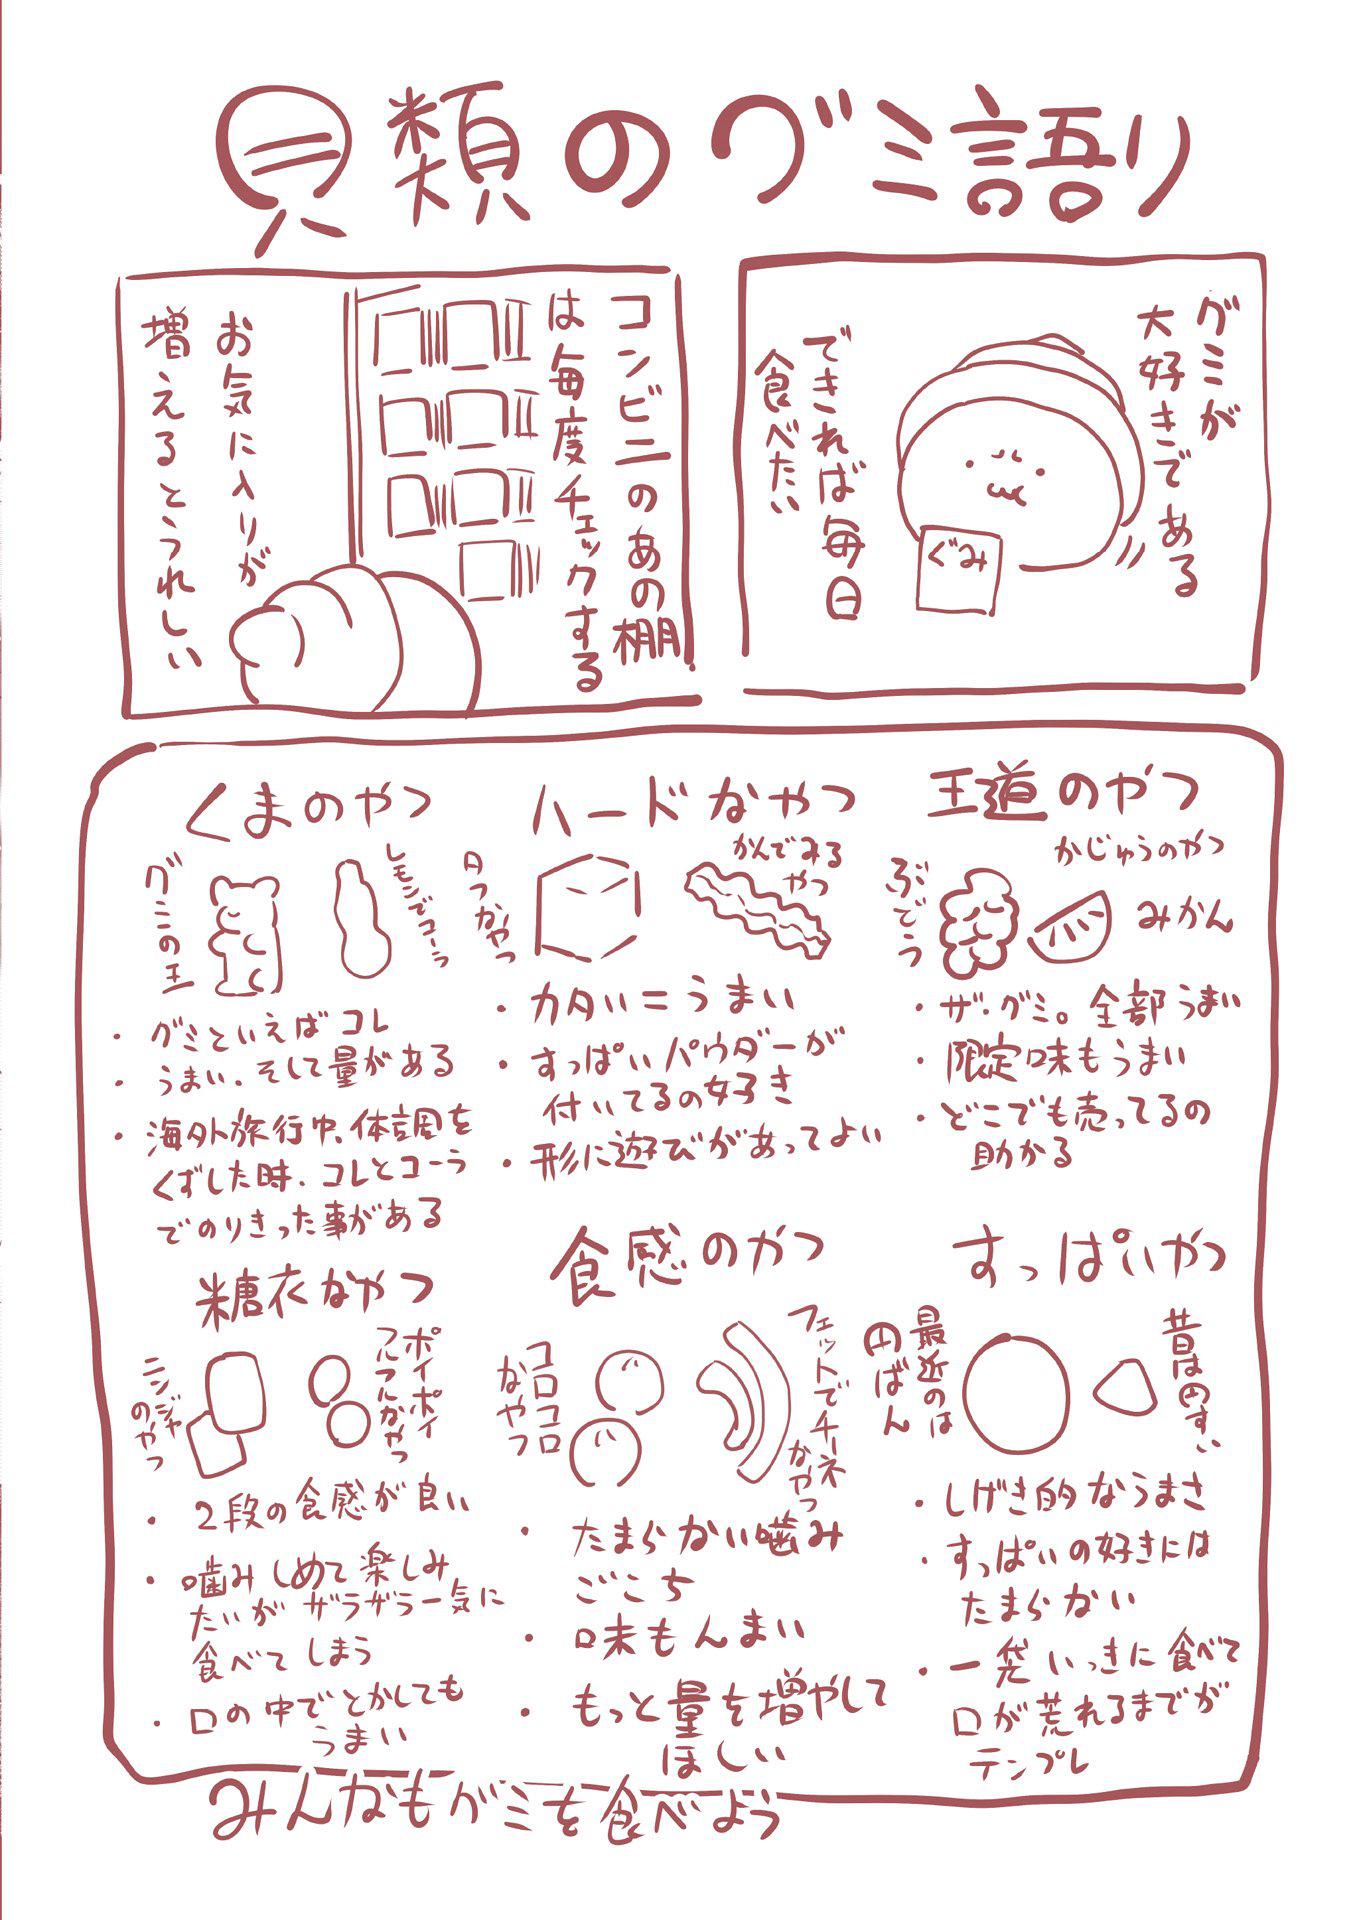 貝類のグミ語り
グミが
大好きである
できれば毎日
食べたい
ぐみ
コンビニのあの棚
は毎度チェックする
お気に入りが
増えるとうれしい
王道のやつ
かじゅうのやつ
ぶどう
みかん
・ザ・グミ。全部うまい
・限定味もうまい
・どこでも売ってるの
助かる
ハードなやつ
かんでみる
やつ
カタい=うまい
・すっぱいパウダーが
付いてるの好き
・形に遊びがあってよい
くまのやつ
グミの王
レモンでコーラ
・グミといえばコレ
・うまい、そして量がある
・海外旅行中、体調を
くずした時、コレとコーラ
でのりきった事がある
すっぱいやつ
昔は田すい
最近のは
円ばん
・しげき的なうまさ
・すっぱいの好きには
たまらない
・一袋いっきに食べて
口が荒れるまでが
テンプレ
食感のやつ
フェットでチーネ
なやつ
コロコロ
なやつ
・たまらない噛み
ごこち
・味もんまい
・もっと量を増やして
ほしい
糖衣なやつ
ポイポイ
なやつ
ニンジャ
のやつ
・2段の食感が良い
・噛みしめて楽しみ
たいがザラザラ一気に
食べてしまう
・口の中でとかしても
うまい
みんなもグミを食べよう